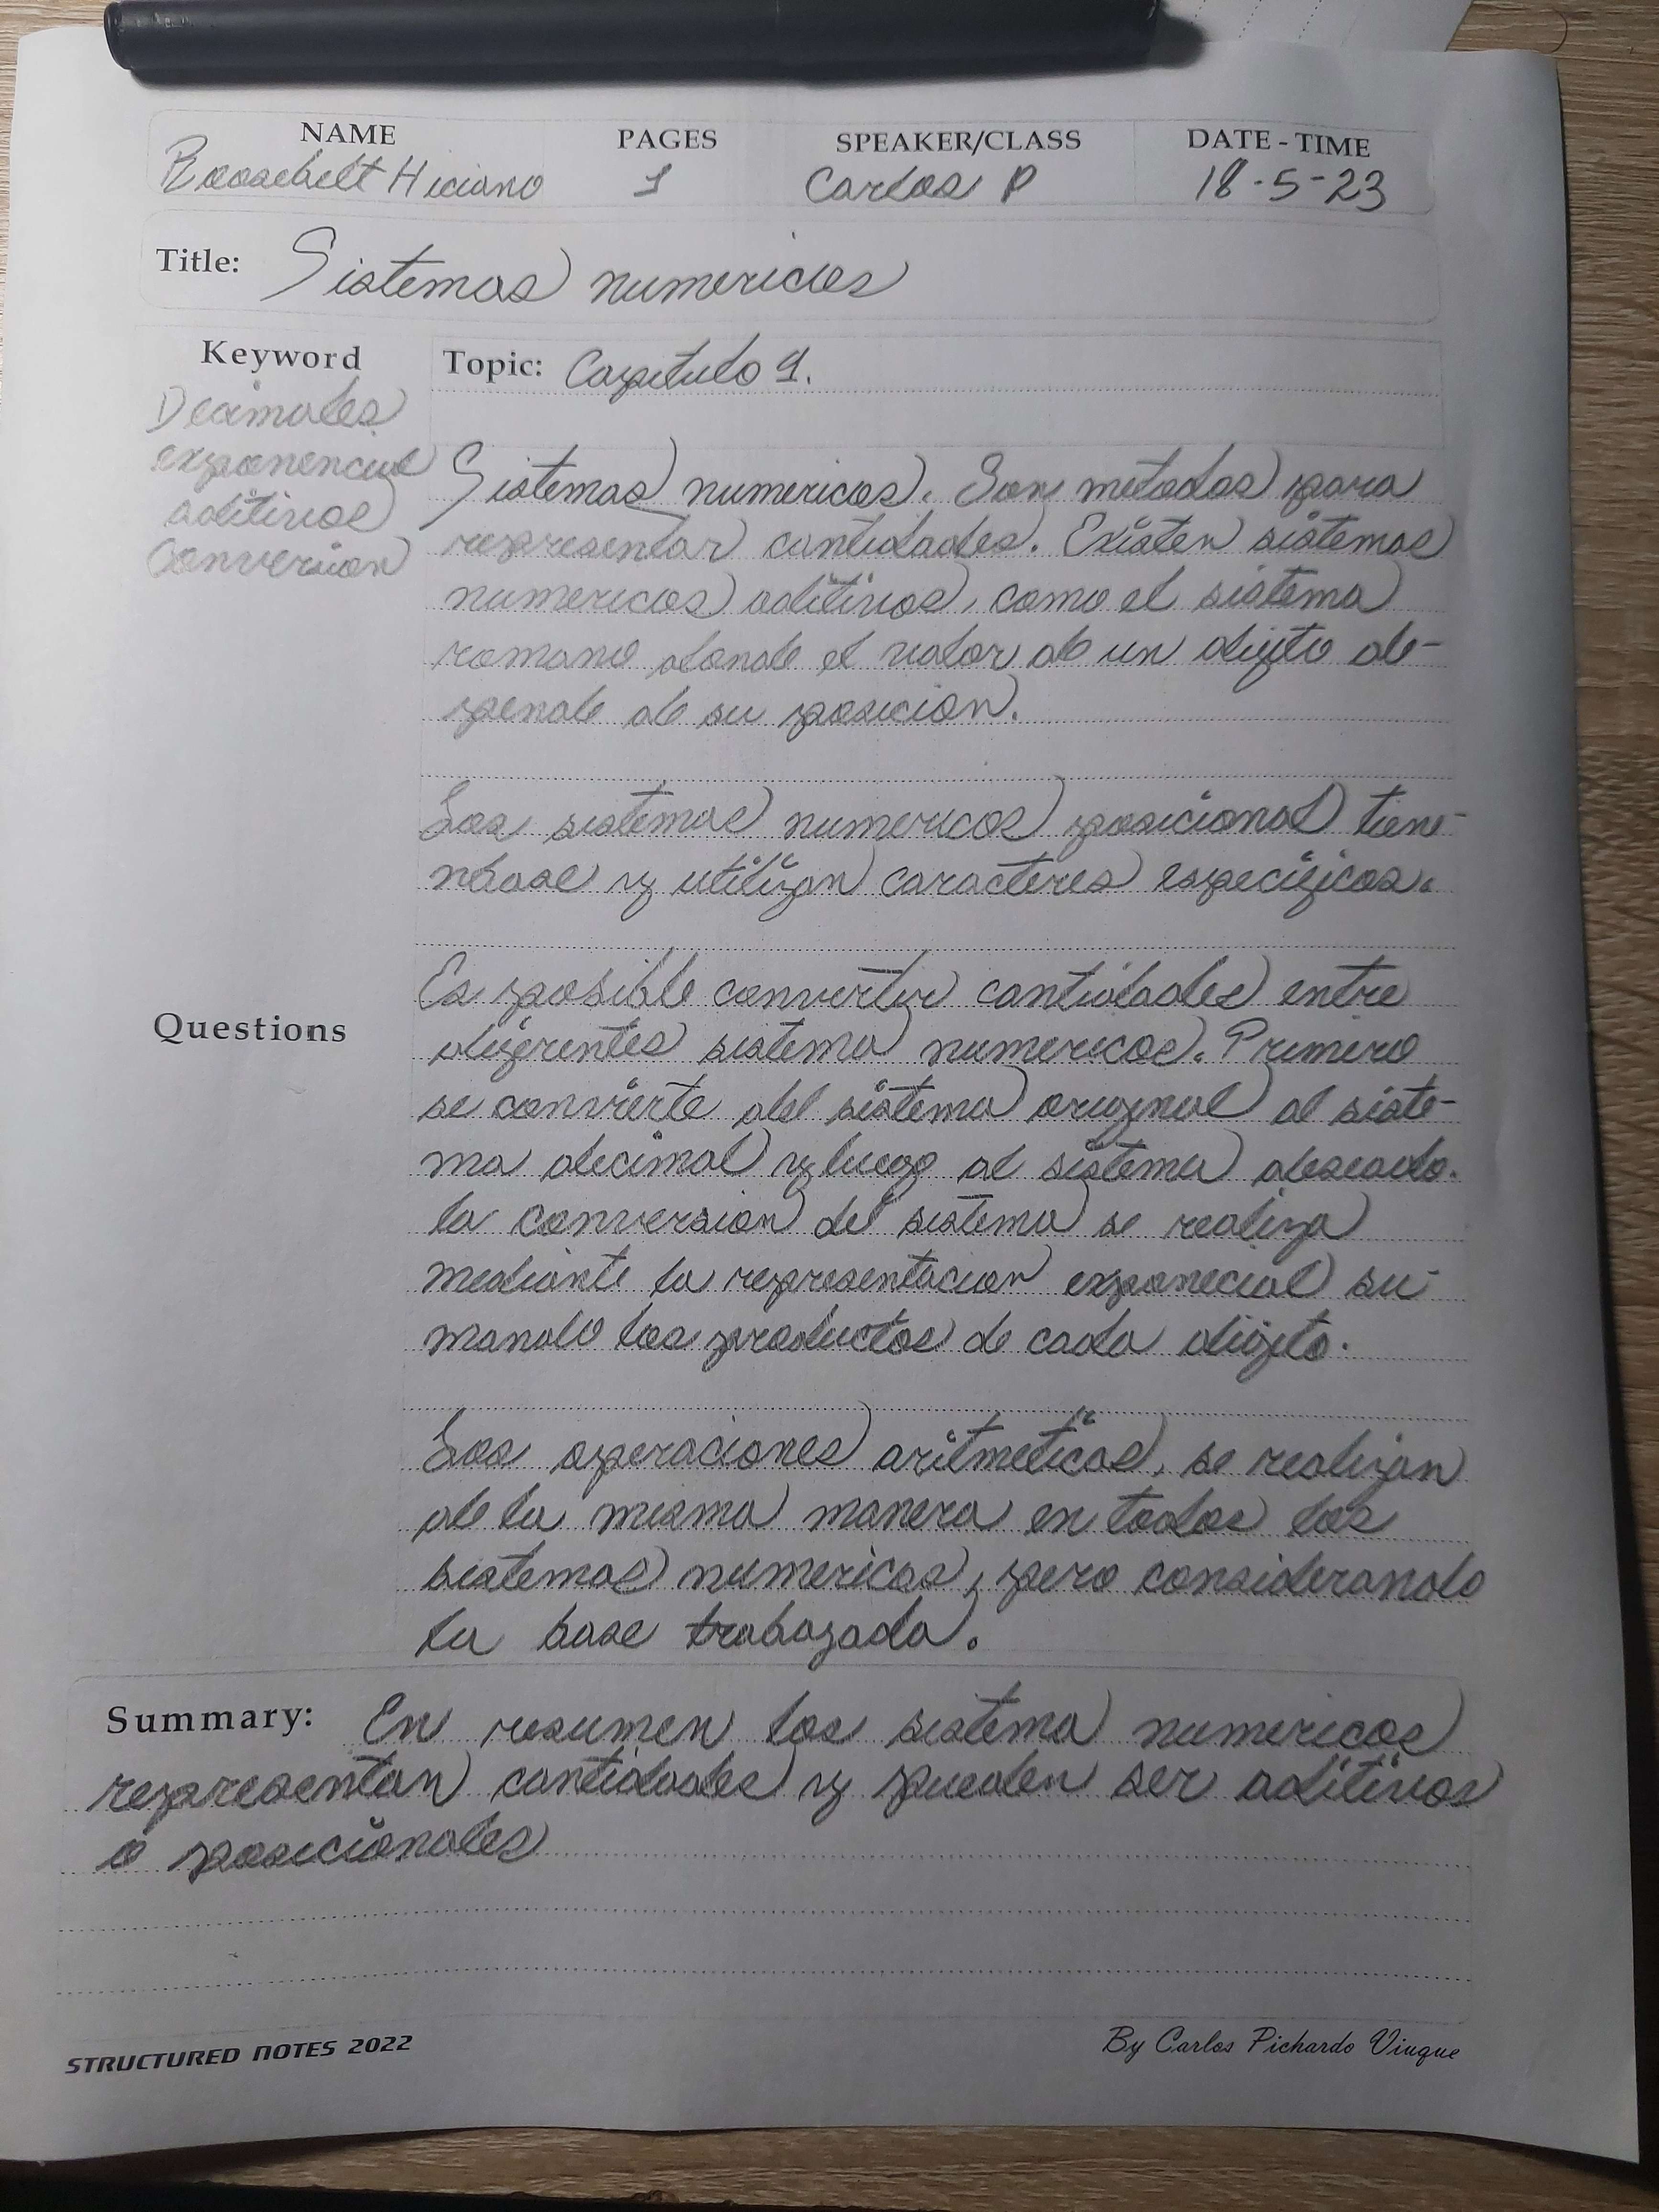 NAME PAGES SPEAKER/CLASS DATE - TIME
Roosebelt Hiciano 1 Carlos P 18-5-23
Title: Sistemas numericos
Keyword
Decimales
exponencial
aditivos
Conversion
Topic: Capitulo 1.
Sistemas numericos. Son metodos para
representar cantidades. Existen sistemas
numericos aditivos, como el sistema
romano donde el valor de un digito de-
pende de su posicion.
Los sistemas numericos posicional tiene-
nbase y utilizan caracteres especificos.
Questions
Es posible convertir cantidades entre
diferentes sistema numericos. Primero
se convierte del sistema original al siste-
ma decimal y luego al sistema deseado.
la conversion del sistema se realiza
mediante la representacion exponecial su-
mando los productos de cada digito.
Las operaciones aritmeticas, se realizan
de la misma manera en todos los
sistemas numericos, pero considerando
la base trabajada.
Summary: En resumen los sistema numericos
representan cantidades y pueden ser aditivos
o posicionales
STRUCTURED NOTES 2022 By Carlos Pichardo Viuque